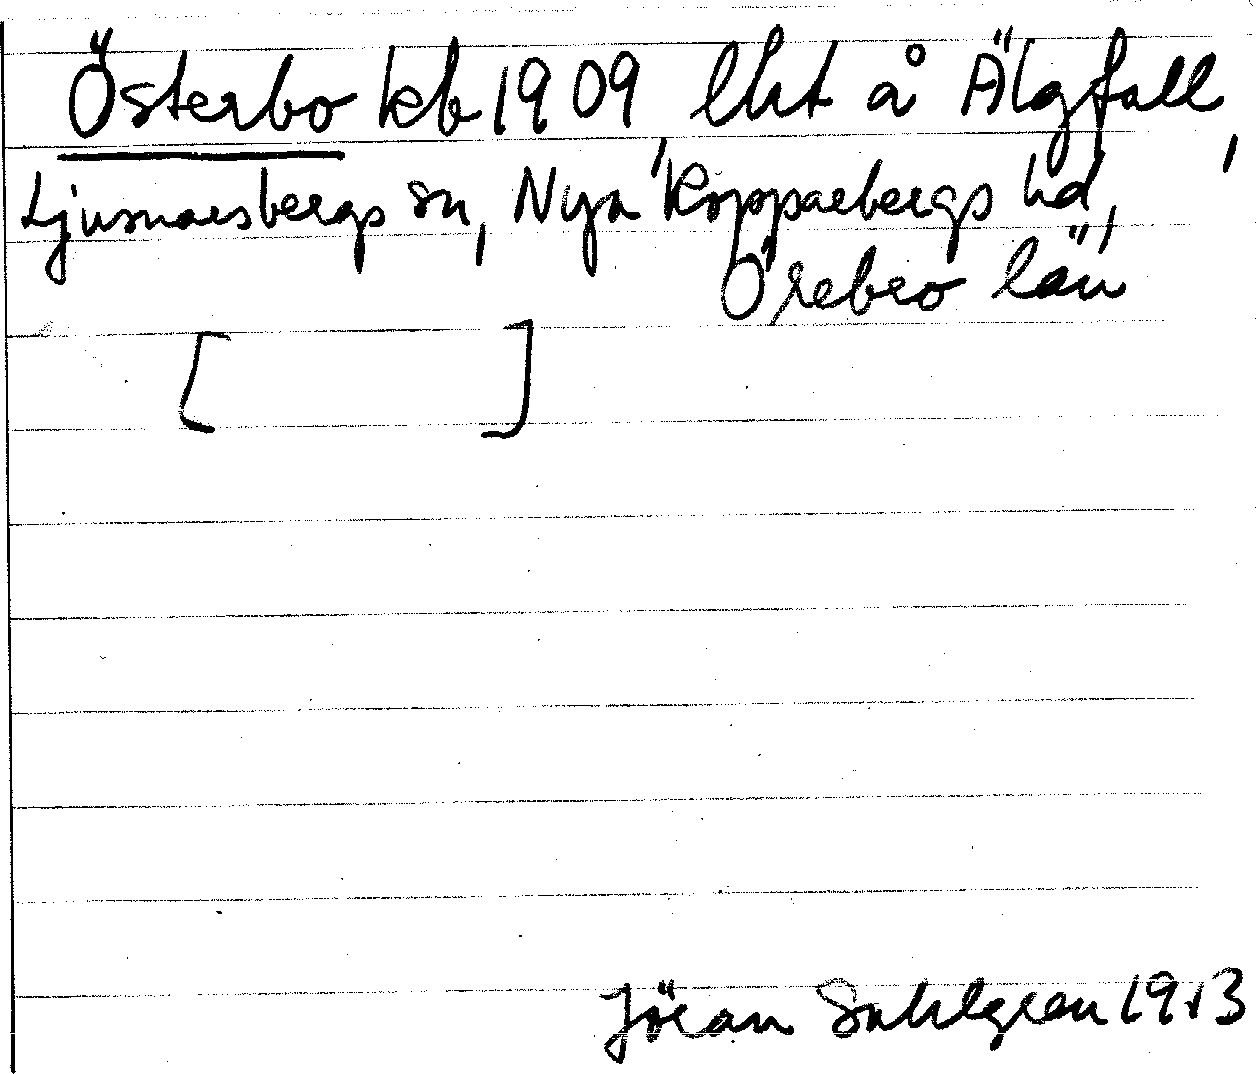 Österbo kb 1909, lht å Älgfall,
Ljusnarsbergs sn, Nya Kopparbergs hd,
Örebro län
[ ]
Jöran Sahlgren 1913